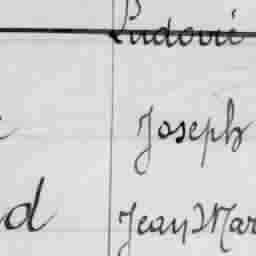 Ludovic
Joseph
d Jean Mar